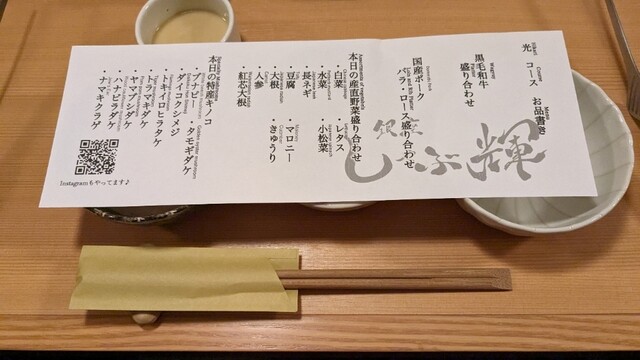 光 コース お品書き
Hikari Course Menu
黒毛和牛
盛り合わせ
国産ポーク
バラ・ロース盛り合わせ
本日の産直野菜盛り合わせ
・白菜 ・レタス
・水菜 ・小松菜
・長ネギ
・豆腐 ・マロニー
・大根 ・きゅうり
・人参
・紅芯大根
本日の特産キノコ
・ブナピー ・タモギダケ
・ダイコクシメジ
・トキイロヒラタケ
・トラマキダケ
・ヤマブシダケ
・ハナビラダケ
・ナマキクラゲ
銀座
しゃぶ輝
Instagramもやってます♪